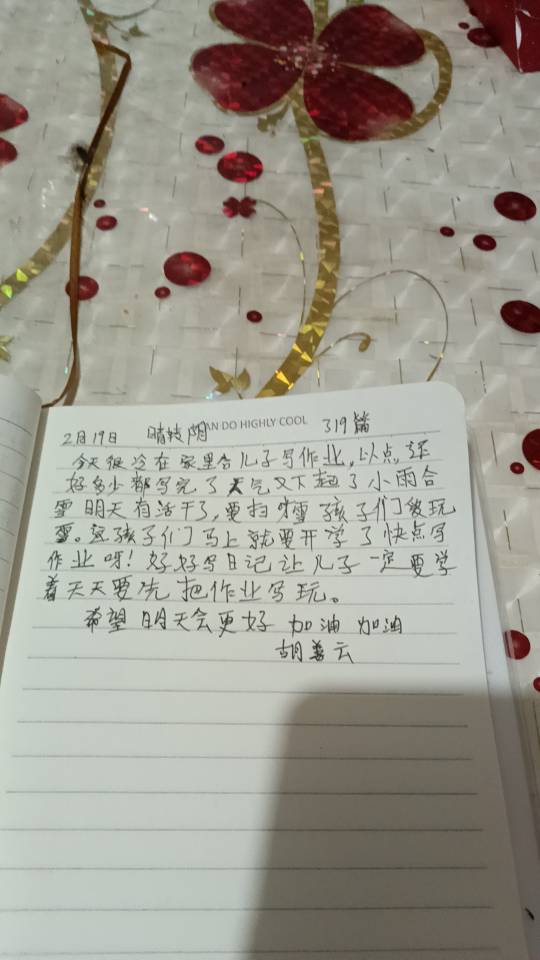 AN DO HIGHLY COOL
2月19日 晴转阴 319篇
今天很冷在家里合儿子写作业,以点,还
好多少都写完了天气又下起了小雨合
雪明天有活干了,要扫雪孩子们玩
雪。孩子们马上就要开学了快点写
作业呀!好好写日记让儿子一定要学
着天天要先把作业写玩。
希望明天会更好 加油 加油
胡善云